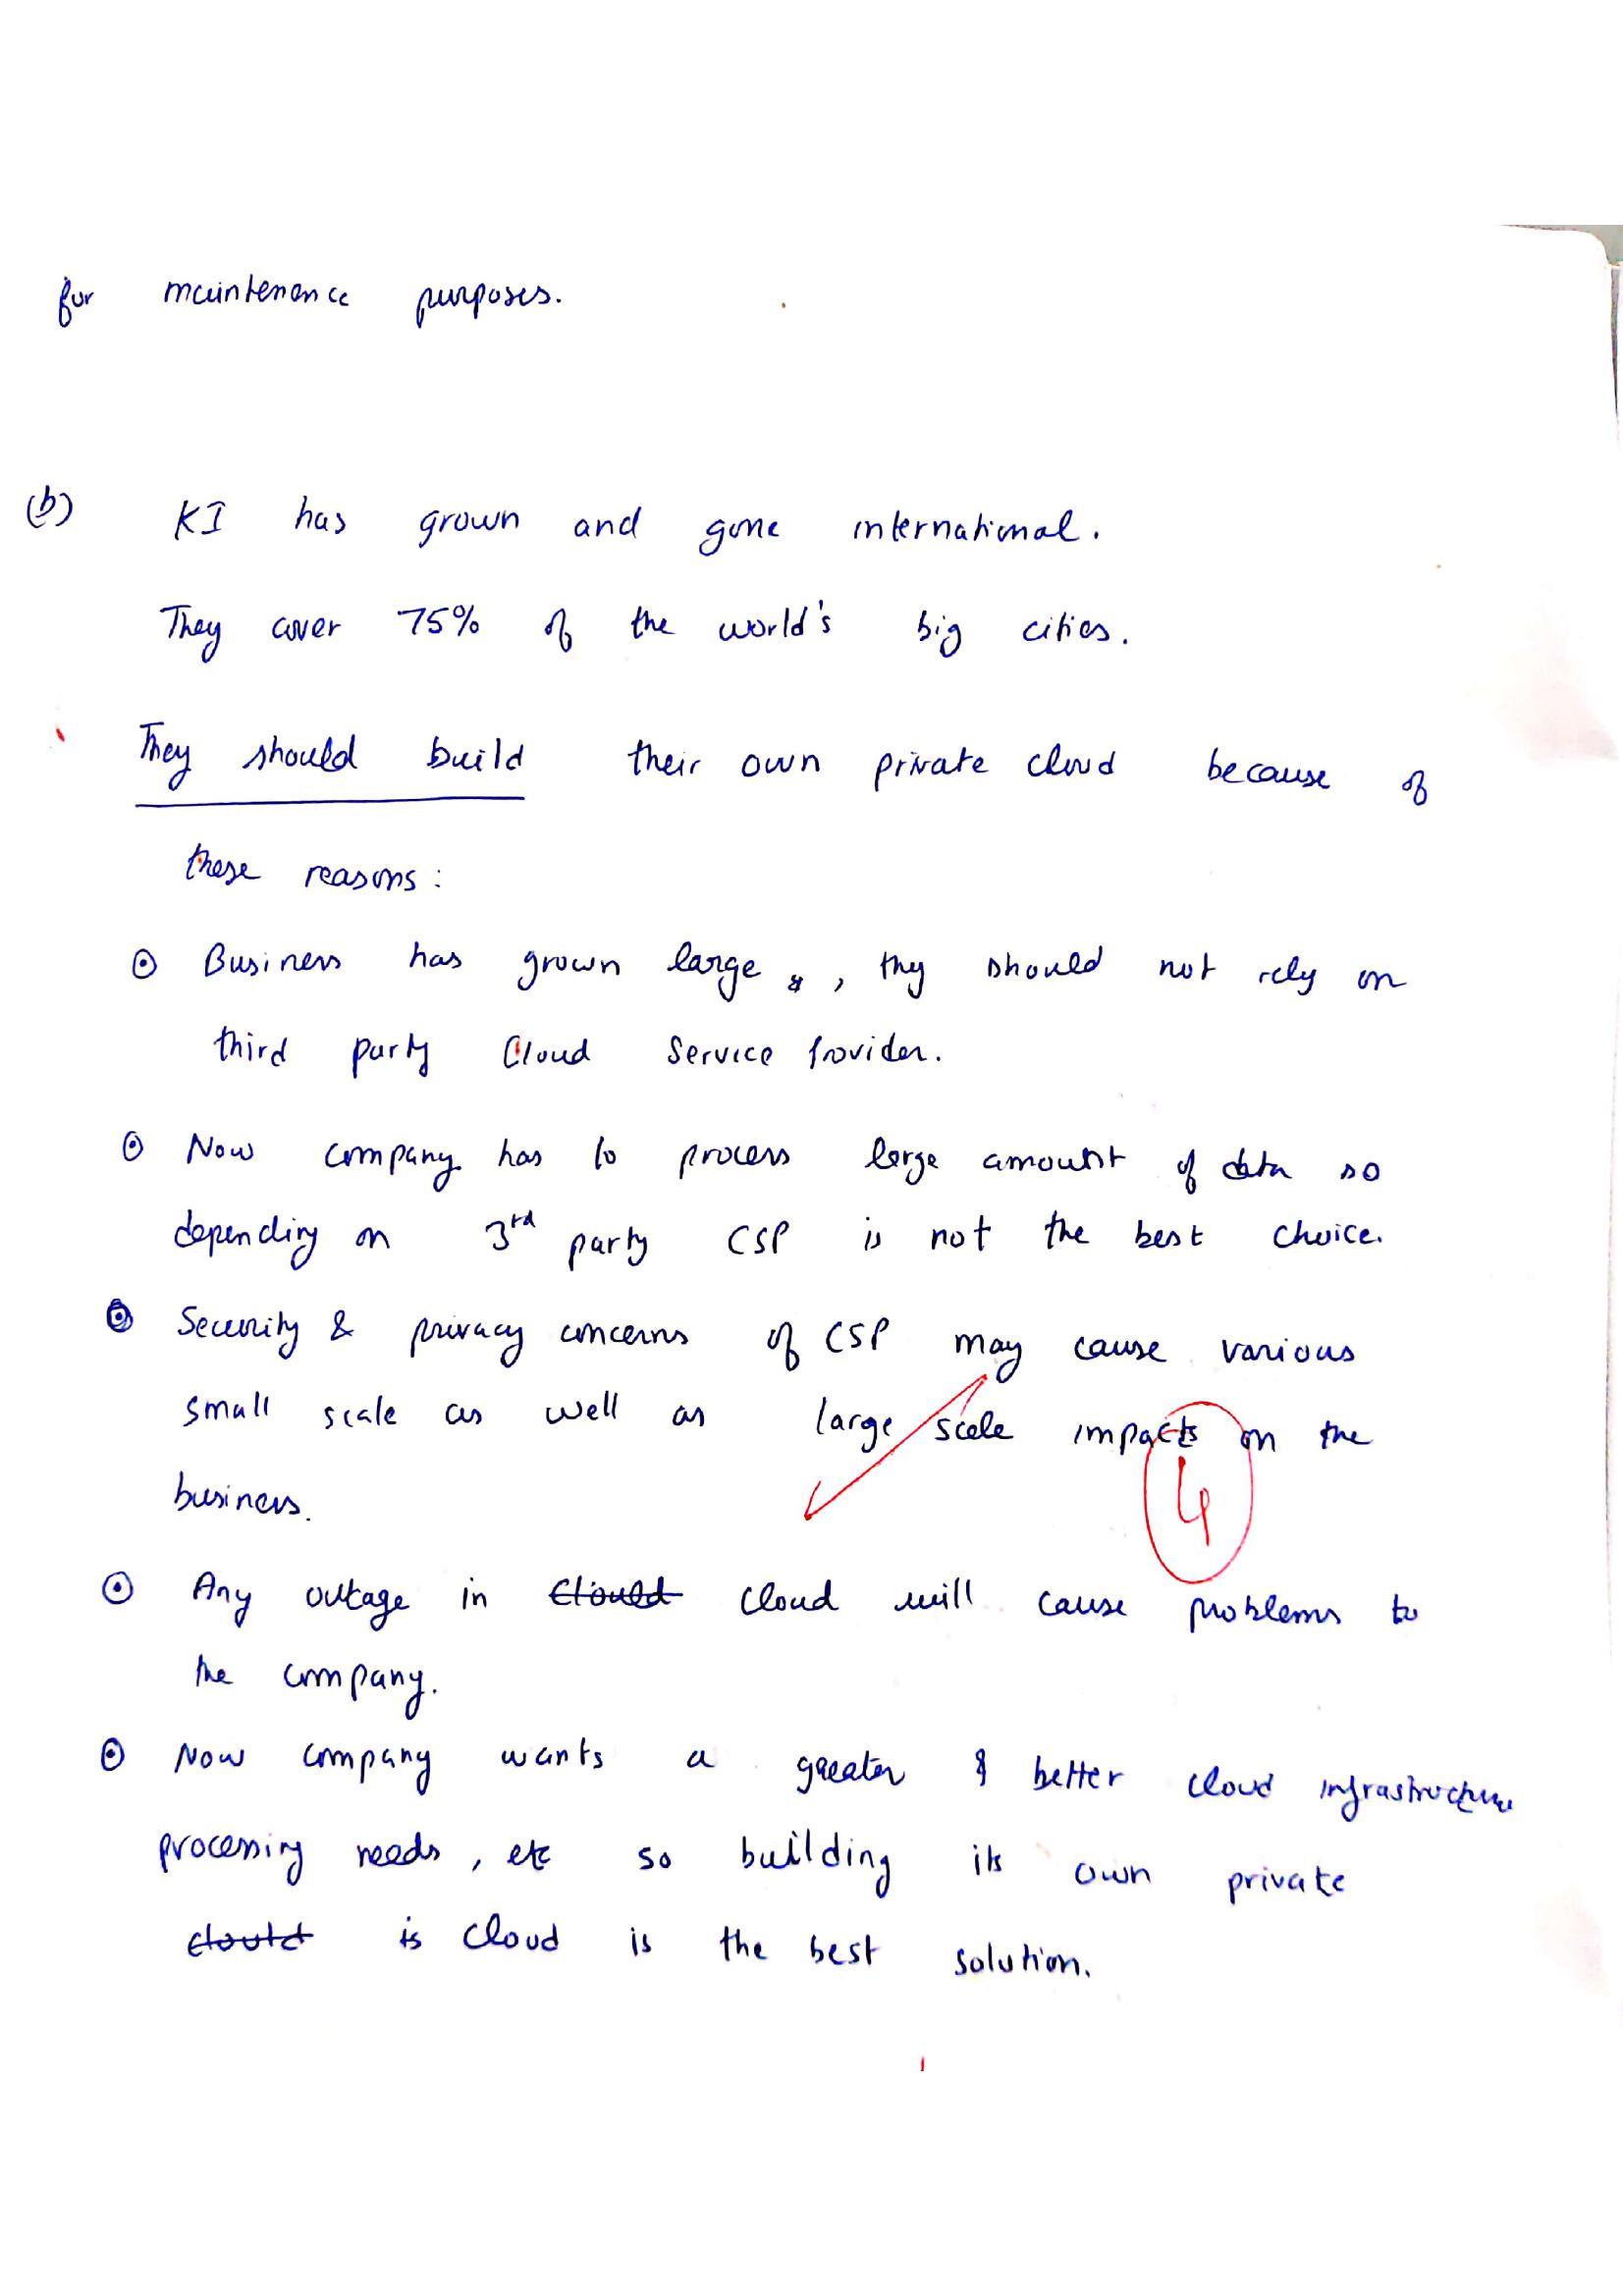 for maintenence purposes.
(b) KI has grown and gone international.
They cover 75% of the world's big cities.
They should build their own private cloud because of
these reasons:
⊙ Business has grown large , they should not rely on
third party Cloud Service Provider.
⊙ Now company has to process large amount of data so
depending on 3rd party CSP is not the best choice.
⊙ Security & privacy concerns of CSP may cause various
small scale as well as large scale impacts on the
business.
4
⊙ Any outage in Clould cloud will cause problems to
the company.
⊙ Now company wants a greater & better cloud infrastructure
processing needs, etc so building its own private
clould is cloud is the best solution.